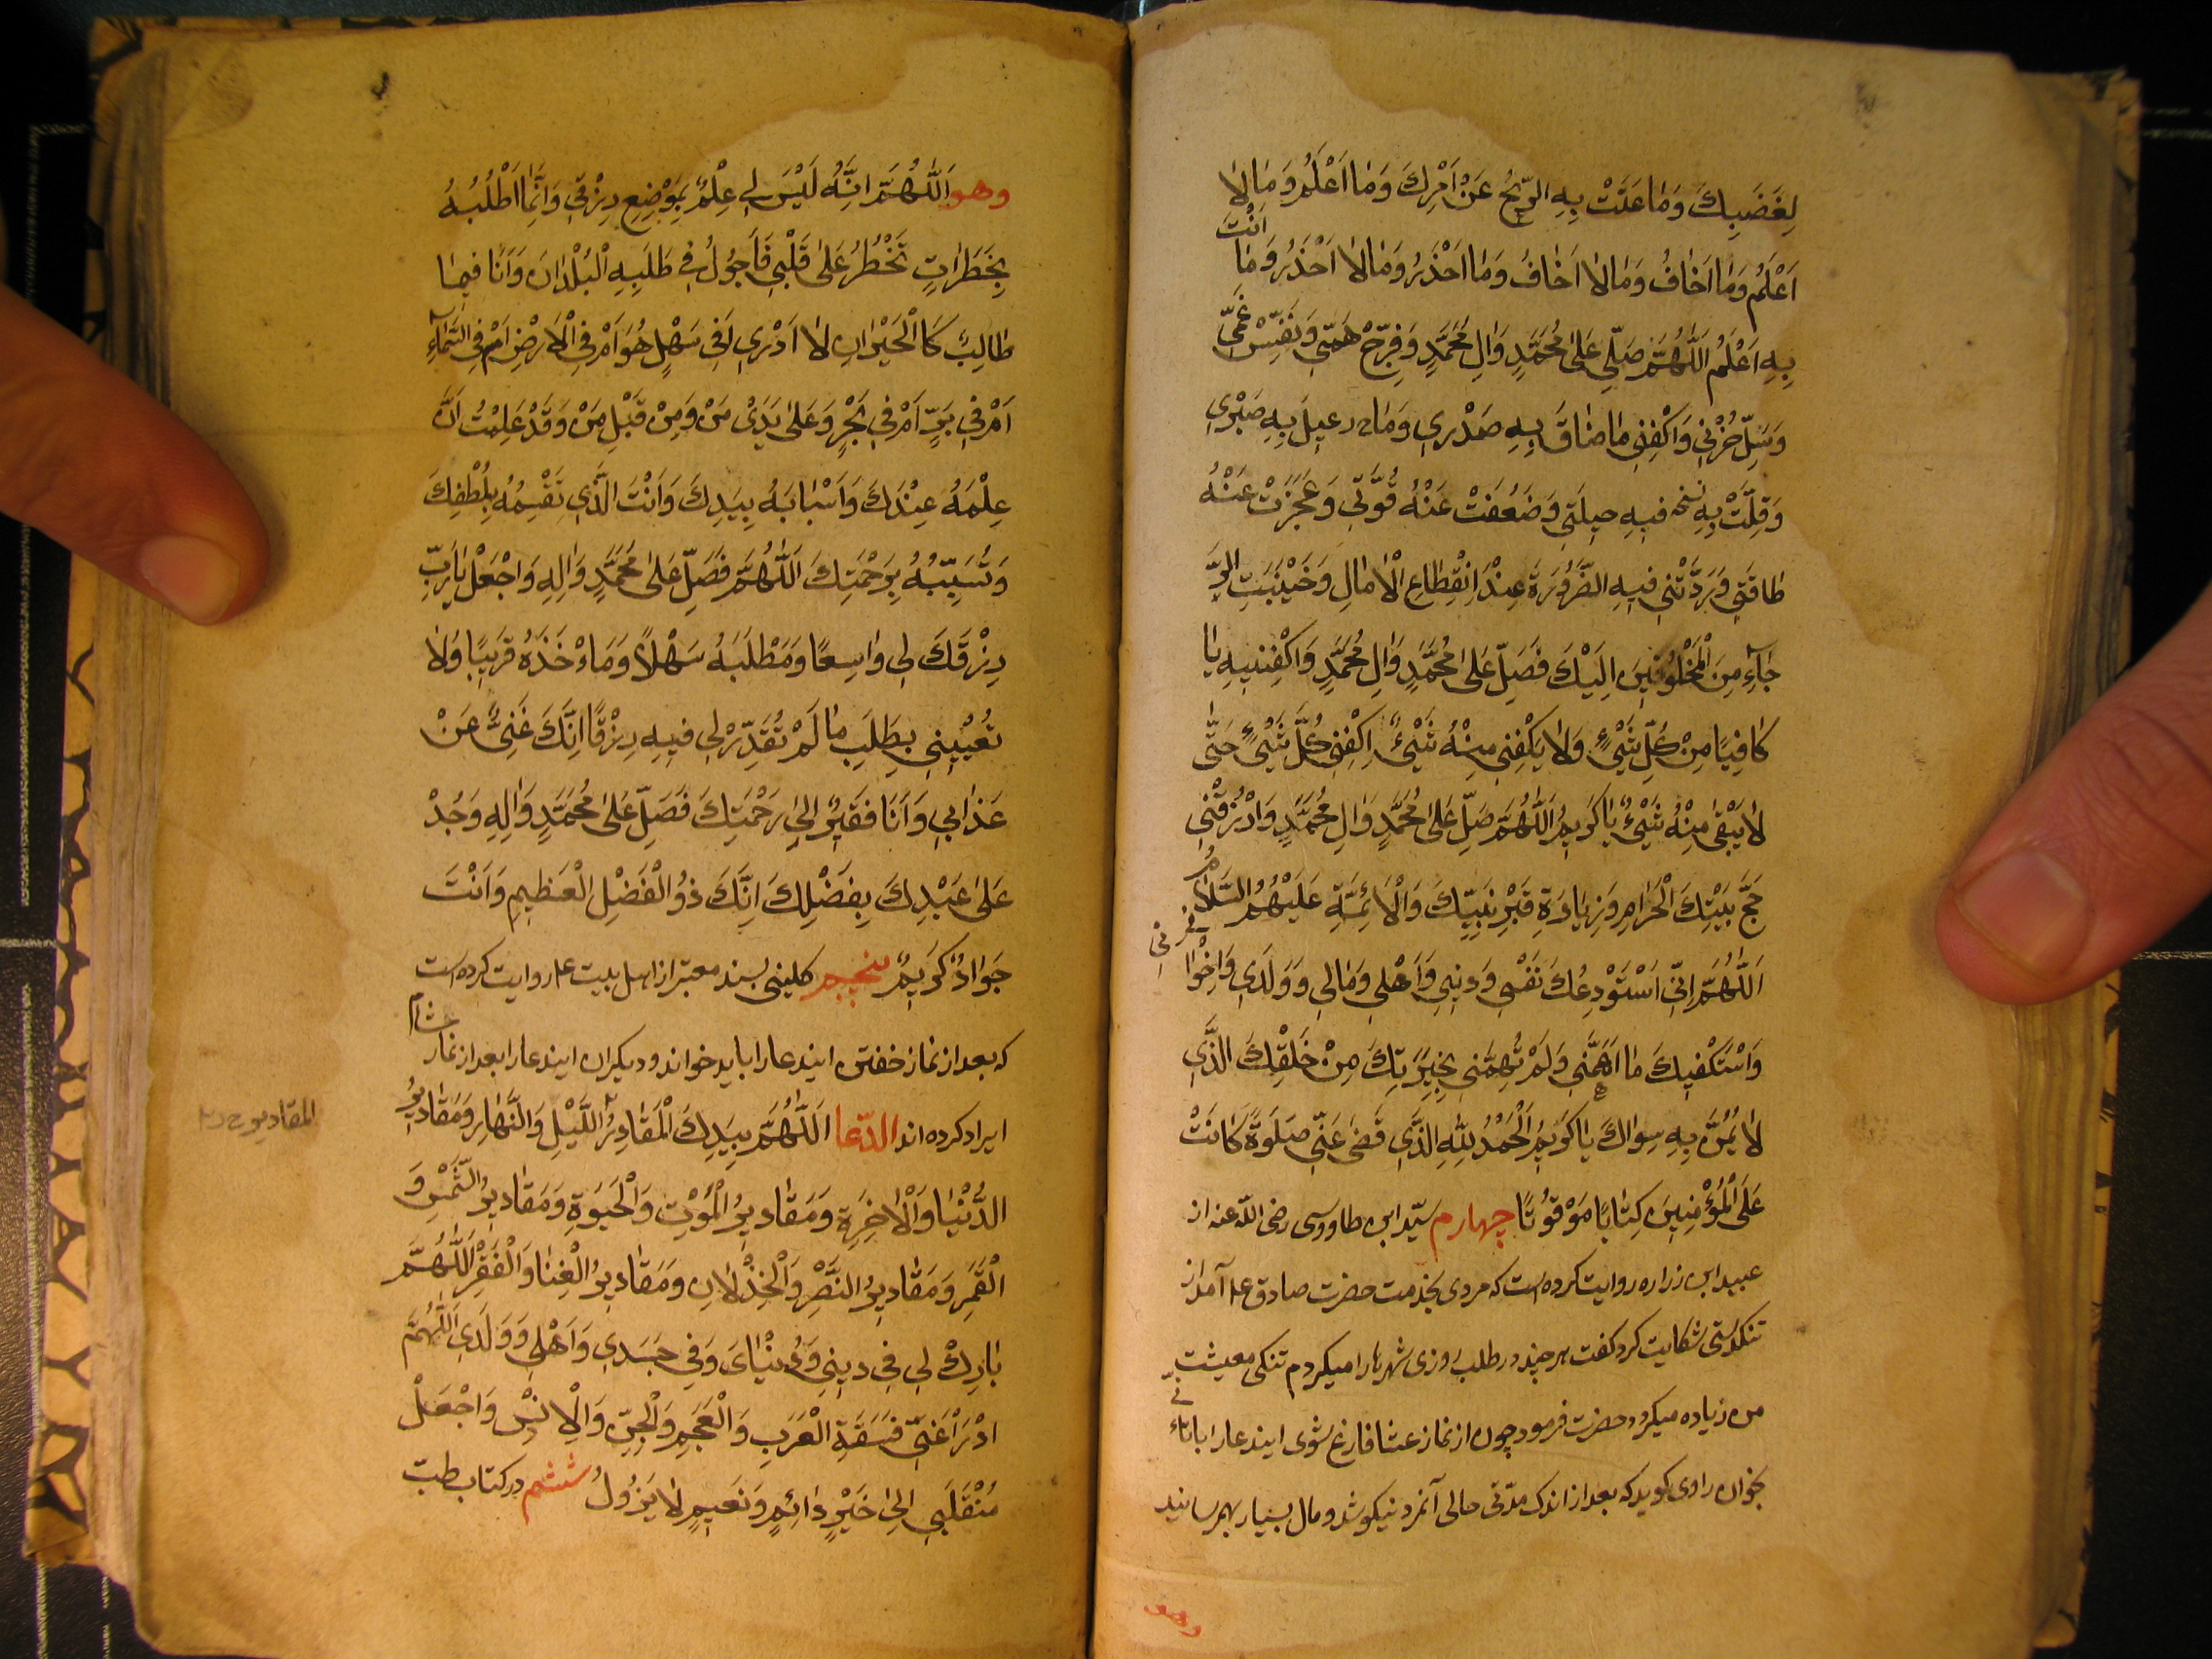 لِغَضَبِكَ وَمَا عَتَتْ بِهِ الرِّيحُ عَنْ اَمْرِكَ وَمَا اَعْلَمُ وَمَا لَا
اَعْلَمُ وَمَا اَخَافُ وَمَا لَا اَخَافُ وَمَا اَحْذَرُ وَمَا لَا اَحْذَرُ وَمَا اَنْتَ
بِهِ اَعْلَمُ اَللّٰهُمَّ صَلِّي عَلٰى مُحَمَّدٍ وَاٰلِ مُحَمَّدٍ وَفَرِّجْ هَمّي وَنَفِّسْ غَمّي
وَسَلِّ حُزْني وَاكْفِنِي مَا ضَاقَ بِهِ صَدْري وَمَا عِيلَ بِهِ صَبْري
وَقَلَّتْ بِهِ نسخه فيهِ حيلَتي وَضَعُفَتْ عَنْهُ قُوَّتي وَعَجَزَتْ عَنْهُ
طَاقَتي وَرَدَّتْني فيهِ الضَّرُورَةُ عِنْدَ انْقِطَاعِ الْاٰمَالِ وَخَيْبَتِ الرَّ
جَاءِ مِنَ الْمَخْلُوقينَ اِلَيْكَ فَصَلِّ عَلٰى مُحَمَّدٍ وَاٰلِ مُحَمَّدٍ وَاكْفِنيهِ يَا
كَافِيًا مِنْ كُلِّ شَيْءٍ وَلَا يَكْفِي مِنْهُ شَيْءٌ اِكْفِني كُلَّ شَيْءٍ حَتّٰى
لَا يَبْقٰى مِنْهُ شَيْءٌ يَا كَريمُ اَللّٰهُمَّ صَلِّ عَلٰى مُحَمَّدٍ وَاٰلِ مُحَمَّدٍ وَارْزُقْني
حَجَّ بَيْتِكَ الْحَرَامِ وَزِيَارَةِ قَبْرِ نَبِيِّكَ وَالْاَئِمَّةِ عَلَيْهُمُ السَّلَامُ
اَللّٰهُمَّ اِنّي اَسْتَوْدِعُكَ نَفْسي وَديني وَاَهْلي وَمَالي وَوَلَدي وَاِخْوَا ني
وَاَسْتَكْفيكَ مَا اَهَمَّني وَلَمْ تُهِمَّني بِخِيَرَتِكَ مِنْ خَلْقِكَ الَّذي
لَا يَمُنُّ بِهِ سِوَاكَ يَا كَريمُ اَلْحَمْدُ لِلّٰهِ الَّذي قَضٰى عَنّي صَلٰوةً كَانَتْ
عَلَى الْمُؤْمِنينَ كِتَابًا مَوْقُوتًا چهارم سيّد ابن طاووسى رضى اللّه عنه از
عبيد ابن زراره روايت كرده است كه مردى بخدمت حضرت صادق ع آمد از
تنكدستى شكايت كرد كفت هر چند در طلب روزى شهرها را ميكردم تنكى معيشت
من زياده ميكردد حضرت فرمود چون از نماز عشا فارغ شوى ايندعا را با تأنّے
بخوان راوى كويد كه بعد از اندك مدّتى حالى آنمرد نيكو شد و مال بسيار بهمرسانيد
وهو
وهو اَللّٰهُمَّ اِنَّهُ لَيْسَ لي عِلْمٌ بِمَوْضِعِ رِزْقي وَاَنَّمَا اَطْلُبُهُ
بِخَطَرَاتٍ تَخْطُرُ عَلٰى قَلْبي فَاَجُولُ في طَلَبِهِ الْبُلْدَانَ وَاَنَا فيمَا
طَالِبٌ كَالْحَيْرَانِ لَا اَدْري اَفي سَهْلٍ هُوَ اَمْ فِي الْاَرْضِ اَمْ فِي السَّمَاءِ
اَمْ في بَرٍّ اَمْ في بَحْرٍ وَعَلٰى يَدَيْ مَنْ وَمِنْ قَبْلِ مَنْ وَقَدْ عَلِمْتُ اَنَّ
عِلْمَهُ عِنْدَكَ وَاَسْبَابَهُ بِيَدِكَ وَاَنْتَ الَّذي تَقْسِمُهُ بِلُطْفِكَ
وَتُسَبِّبُهُ بِرَحْمَتِكَ اَللّٰهُمَّ فَصَلِّ عَلٰى مُحَمَّدٍ وَاٰلِهِ وَاجْعَلْ يَا رَبِّ
رِزْقَكَ لي وَاسِعًا وَمَطْلَبَهُ سَهْلًا وَمَاءْخَذَهُ قَريبًا وَلَا
تُعَيِّني بِطَلَبِ مَا لَمْ تُقَدِّرْ لي فيهِ رِزْقًا اِنَّكَ غَنِيٌّ عَنْ
عَذَابي وَاَنَا فَقيرٌ اِلٰى رَحْمَتِكَ فَصَلِّ عَلٰى مُحَمَّدٍ وَاٰلِهِ وَجُدْ
عَلٰى عَبْدِكَ بِفَضْلِكَ اِنَّكَ ذُو الْفَضْلِ الْعَظيمِ وَاَنْتَ
جَوَادٌ كَريمٌ پنجم كلينى بسند معتبر از اهل بيت ع روايت كرده است
كه بعد از نماز خفتن ايندعا را بايد خواند و ديكران ايندعا را بعد از نماز شام
ايراد كرده اند الدّعا اَللّٰهُمَّ بِيَدِكَ الْمَقَادِيرُ اللَّيْلِ وَالنَّهَارِ وَمَقَاديرُ
الدُّنْيَا وَالْاٰخِرَةِ وَمَقَاديرُ الْمَوْتِ وَالْحَيٰوةِ وَمَقَاديرُ الشَّمْسِ وَ
الْقَمَرِ وَمَقَاديرُ النَّصْرِ وَالْخِذْلَانِ وَمَقَاديرُ الْغِنَا وَالْفَقْرِ اَللّٰهُمَّ
بَارِكْ لي في ديني وَدُنْيَايَ وَفي جَسَدي وَاَهْلي وَوَلَدي اَللّٰهُمَّ
ادْرَاْ عَنّي فَسَقَةِ الْعَرَبِ وَالْعَجَمِ وَالْجِنِّ وَالْاِنْسِ وَاجْعَلْ
مُنْقَلَبي اِلٰى خَيْرٍ دَائِمٍ وَنَعيمٍ لَا يَزُولُ ششم در كتاب طبّ
المقادير